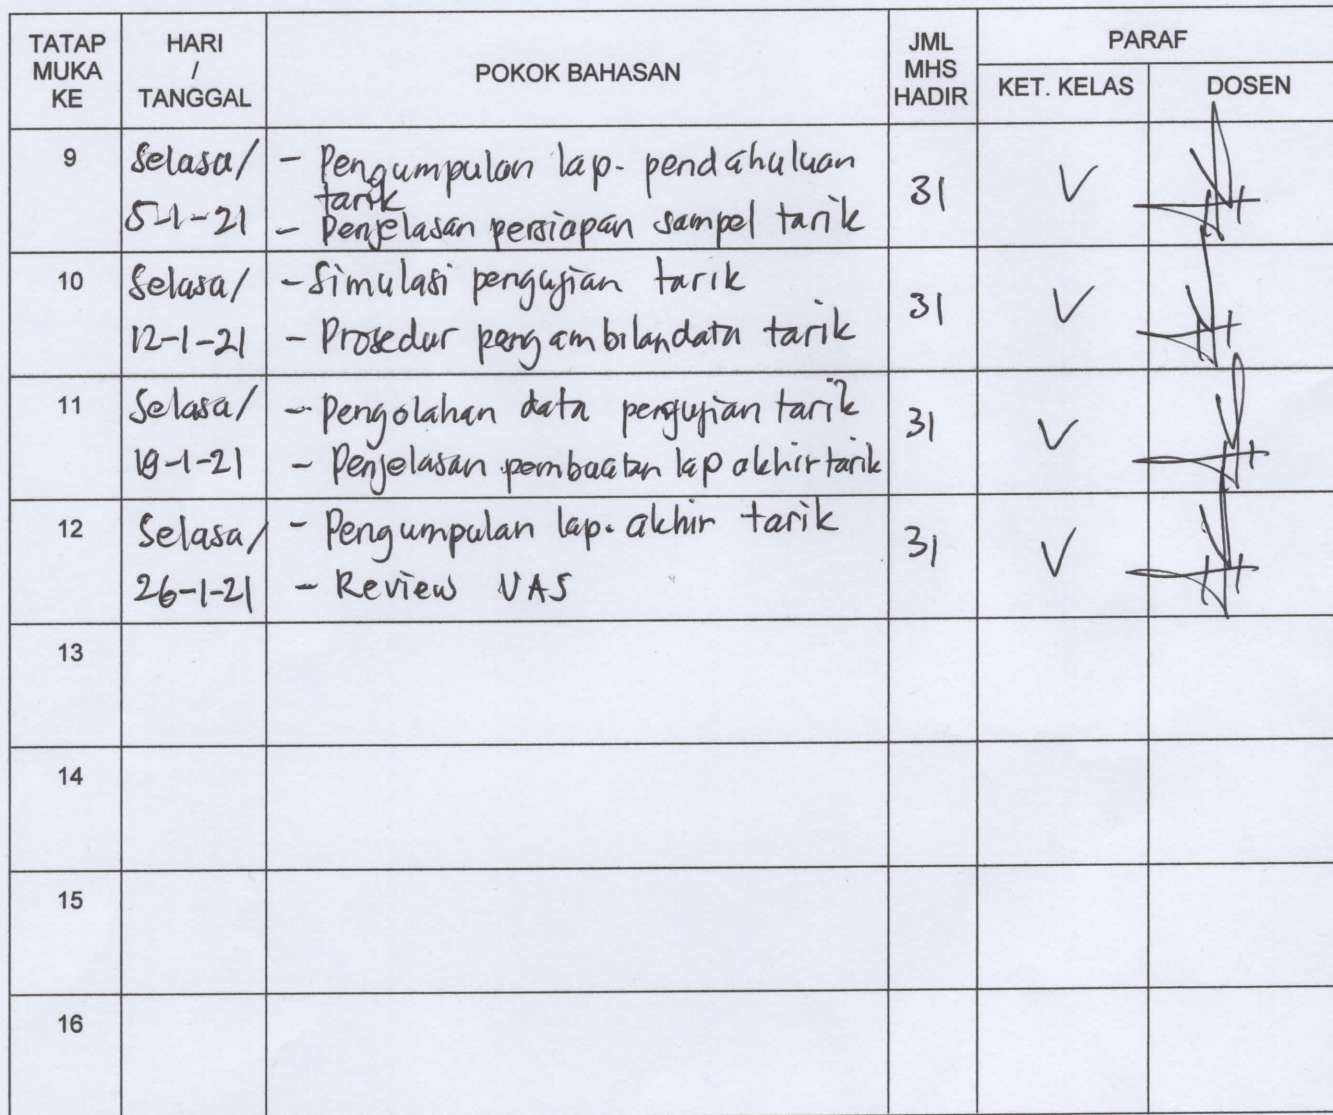 TATAP MUKA KE
HARI / TANGGAL
POKOK BAHASAN
JML MHS HADIR
PARAF
KET. KELAS
DOSEN
9
Selasa/
5-1-21
- Pengumpulan lap. pendahuluan
tarik
- Penjelasan persiapan sampel tarik
31
V
10
Selasa/
12-1-21
- Simulasi pengujian tarik
- Prosedur pengambilan data tarik
31
V
11
Selasa/
19-1-21
- Pengolahan data pengujian tarik
- Penjelasan pembuatan lap akhir tarik
31
V
12
Selasa/
26-1-21
- Pengumpulan lap. akhir tarik
- Review UAS
31
V
13
14
15
16